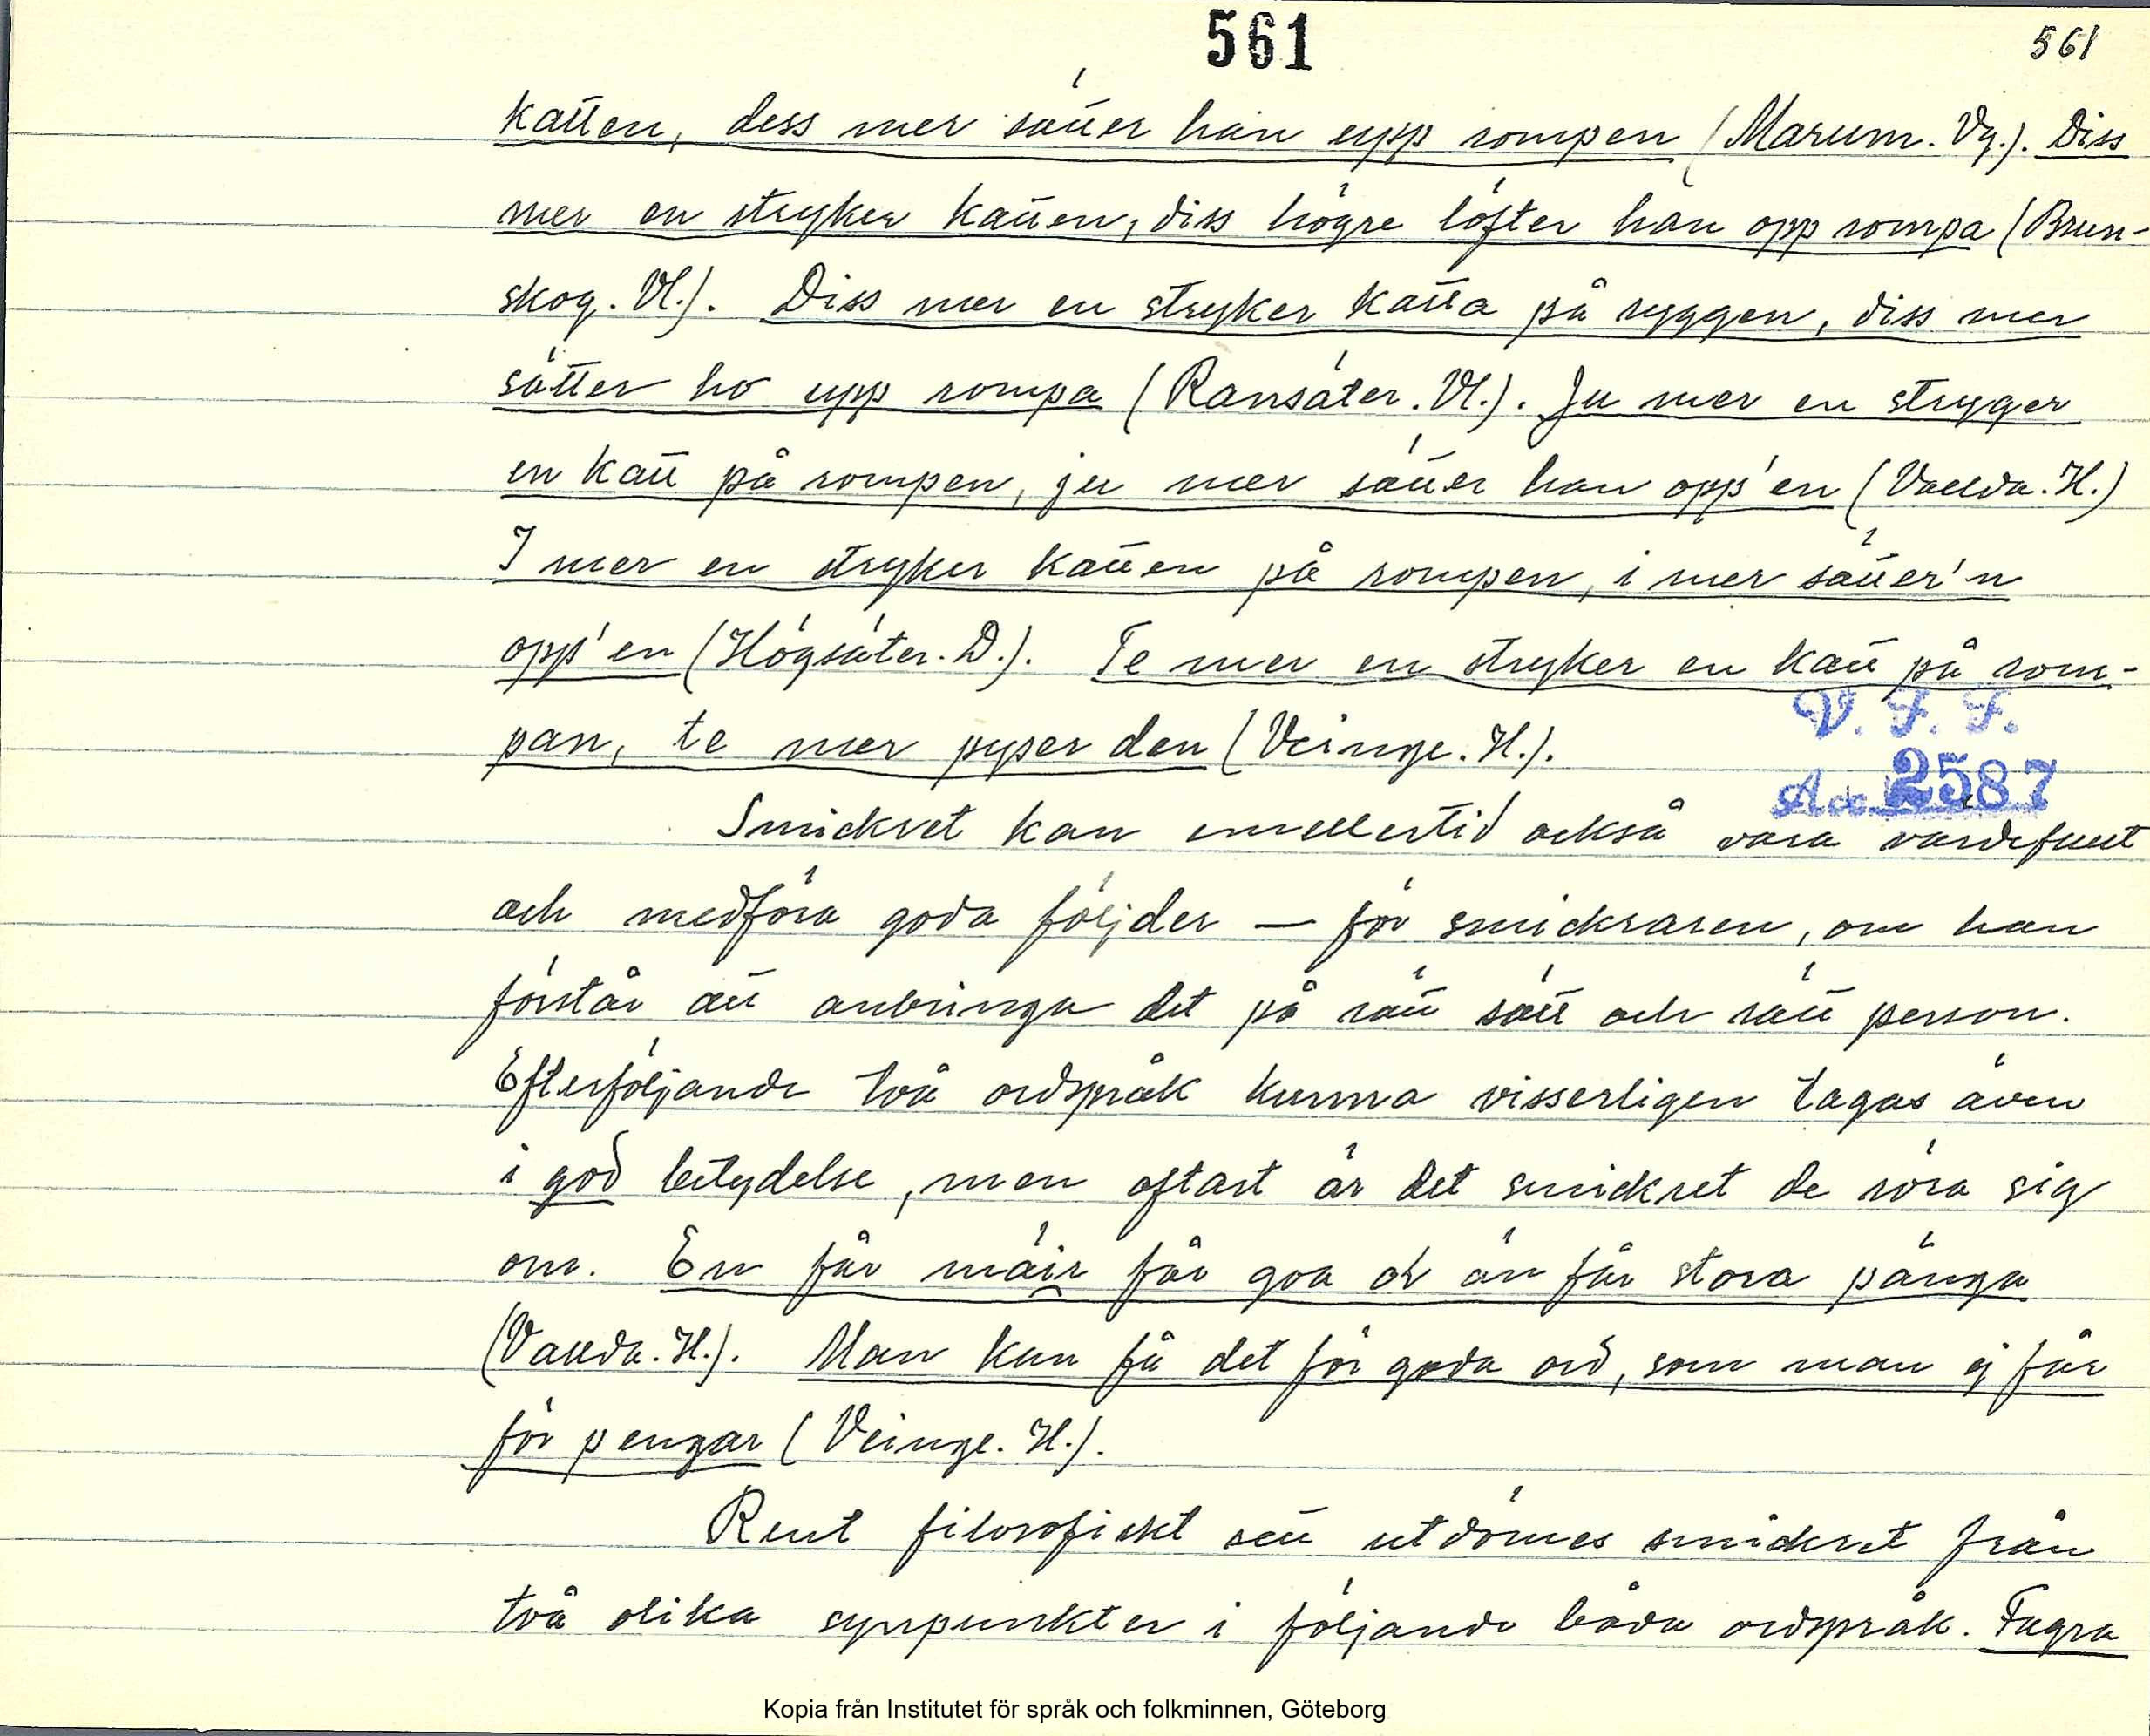 561
561
katten, dess mer sätter han upp rompen (Marum. Vg.). Diss
mer en stryker katten, diss högre löfter han opp rompa (Brun-
skog. Vl.). Diss mer en stryker katta på ryggen, diss mer
sätter ho upp rompa (Ransäter. Vl.). Ju mer en stryger
en katt på rompen, ju mer sätter han opp'en (Vallda. H.)
I mer en stryker katten på rompen, i mer sätter'n
opp'en (Högsäter. D.). Te mer en stryker en katt på rom-
pan, te mer pyser den (Veinge. H.).
V. F. F.
Acc 2587
Smickret kan emellertid också vara värdefullt
och medföra goda följder — för smickraren, om han
förstår att anbringa det på rätt sätt och rätt person.
Efterföljande två ordspråk kunna visserligen tagas även
i god betydelse, men oftast är det smickret de röra sig
om. En får mäir får goa ol än får stora pänga
(Vallda. H.). Man kan få det för goda ord, som man ej får
för pengar (Veinge. H.).
Rent filosofiskt sett utdömes smickret från
två olika synpunkter i följande båda ordspråk. Fagra
Kopia från Institutet för språk och folkminnen, Göteborg